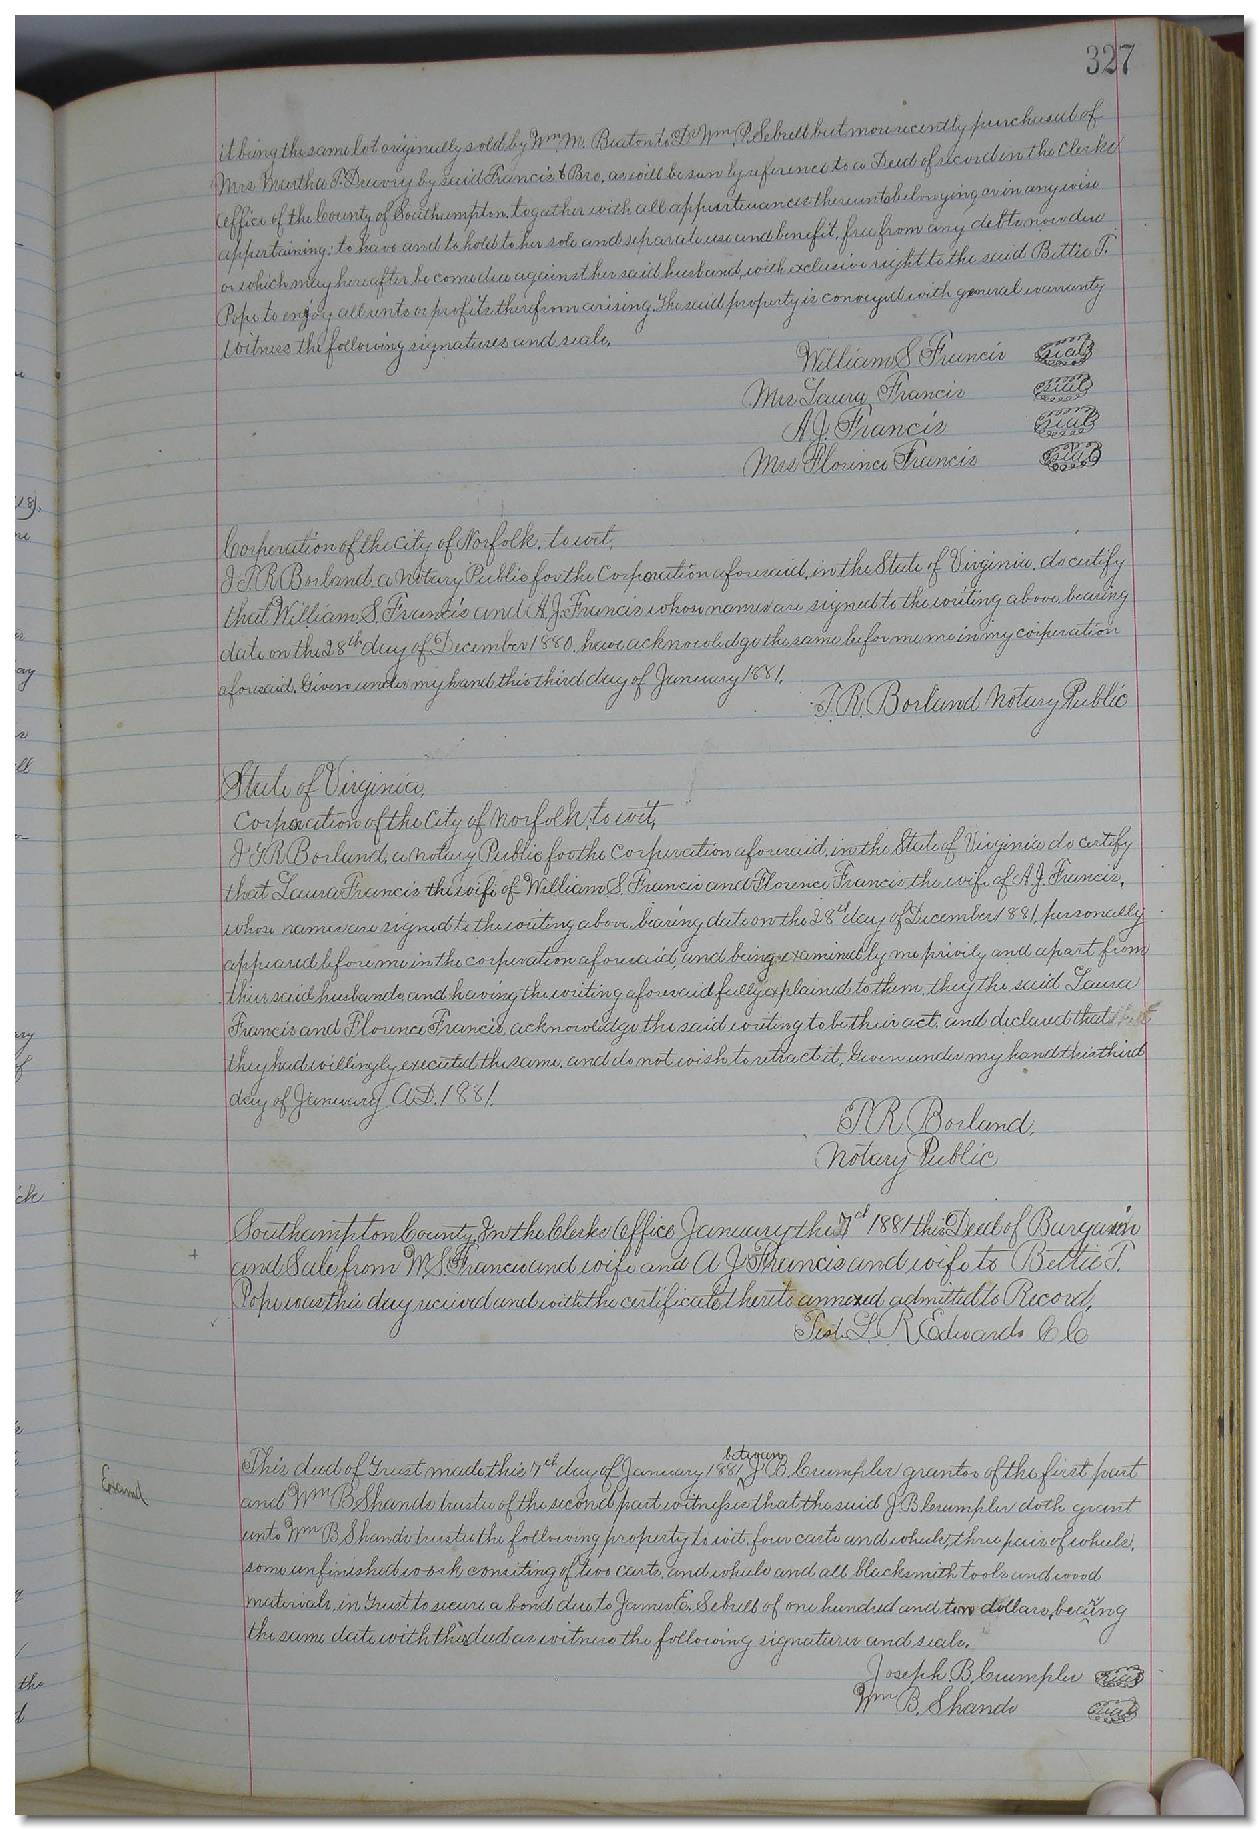 327
it being the same lot originally sold by Wm. M. Beaton to Dr Wm. P. Sebrell but more recently purchased of
Mrs Martha P. Drewry by said Francis & Bro, as will be seen by reference to a Deed of record in the Clerks
Office of the County of Southampton, together with all appurtenances thereunto belonging or in any wise
appertaining; to have and to hold to her sole and separate use and benefit, free from any debts now due
or which may hereafter become due against her said husband, with exclusive right to the said Bettie T.
Pope to enjoy all rents or profits therefrom arising. The said property is conveyed with general warranty
Witness the following signatures and seals.
William S Francis Seal
Mrs Laura Francis Seal
A J. Francis Seal
Mrs Florence Francis Seal
Corporation of the City of Norfolk, to wit,
I T. R Borland a Notary Public for the Corporation aforesaid, in the State of Virginia, do certify
that William S. Francis and A. J. Francis whose names are signed to the writing above, bearing
date on the 28th day of December 1880, have acknowledge the same before me me in my corporation
aforesaid. Given under my hand this third day of January 1881.
T. R. Borland Notary Public
State of Virginia.
Corporation of the City of Norfolk, to wit,
I T R Borland, a Notary Public for the Corporation aforesaid, in the State of Virginia do certify
that Laura Francis the wife of William S Francis and Florence Francis the wife of A. J. Francis,
whose names are signed to the writing above, bearing date on the 28th day of December 1881, personally
appeared before me in the corporation aforesaid, and being examined by me privily and apart from
their said husbands and having the writing aforesaid fully explained to them, they the said Laura
Francis and Florence Francis, acknowledge the said writing to be their act, and declared that
they had willingly executed the same, and do not wish to retract it, Given under my hand this third
day of January A.D. 1881.
T R Borland.
Notary Public
Southampton County, In the Clerks Office January the 7th 1881 this Deed of Bargain
and Sale from W. S. Francis and wife and A J Francis and wife to Bettie T.
Pope was this day received and with the certificate thereto annexed admitted to Record,
Test L. R. Edwards C C
This deed of Trust made this 7th day of January 1881, between J B Crumpler grantor of the first part
Examd
and Wm B Shands trustee of the second part witness: that the said J. B Crumpler doth grant
unto Wm B Shands trustee the following property to wit, four carts and wheels, three pair of wheels,
some unfinished work consiting of two carts, and wheels and all blacksmith tools and wood
materials, in Trust to secure a bond due to James E. Sebrell of one hundred and two dollars, bearing
the same date with this deed as witness the following signatures and seals.
Joseph. B. Crumpler Seal
Wm B. Shands Seal